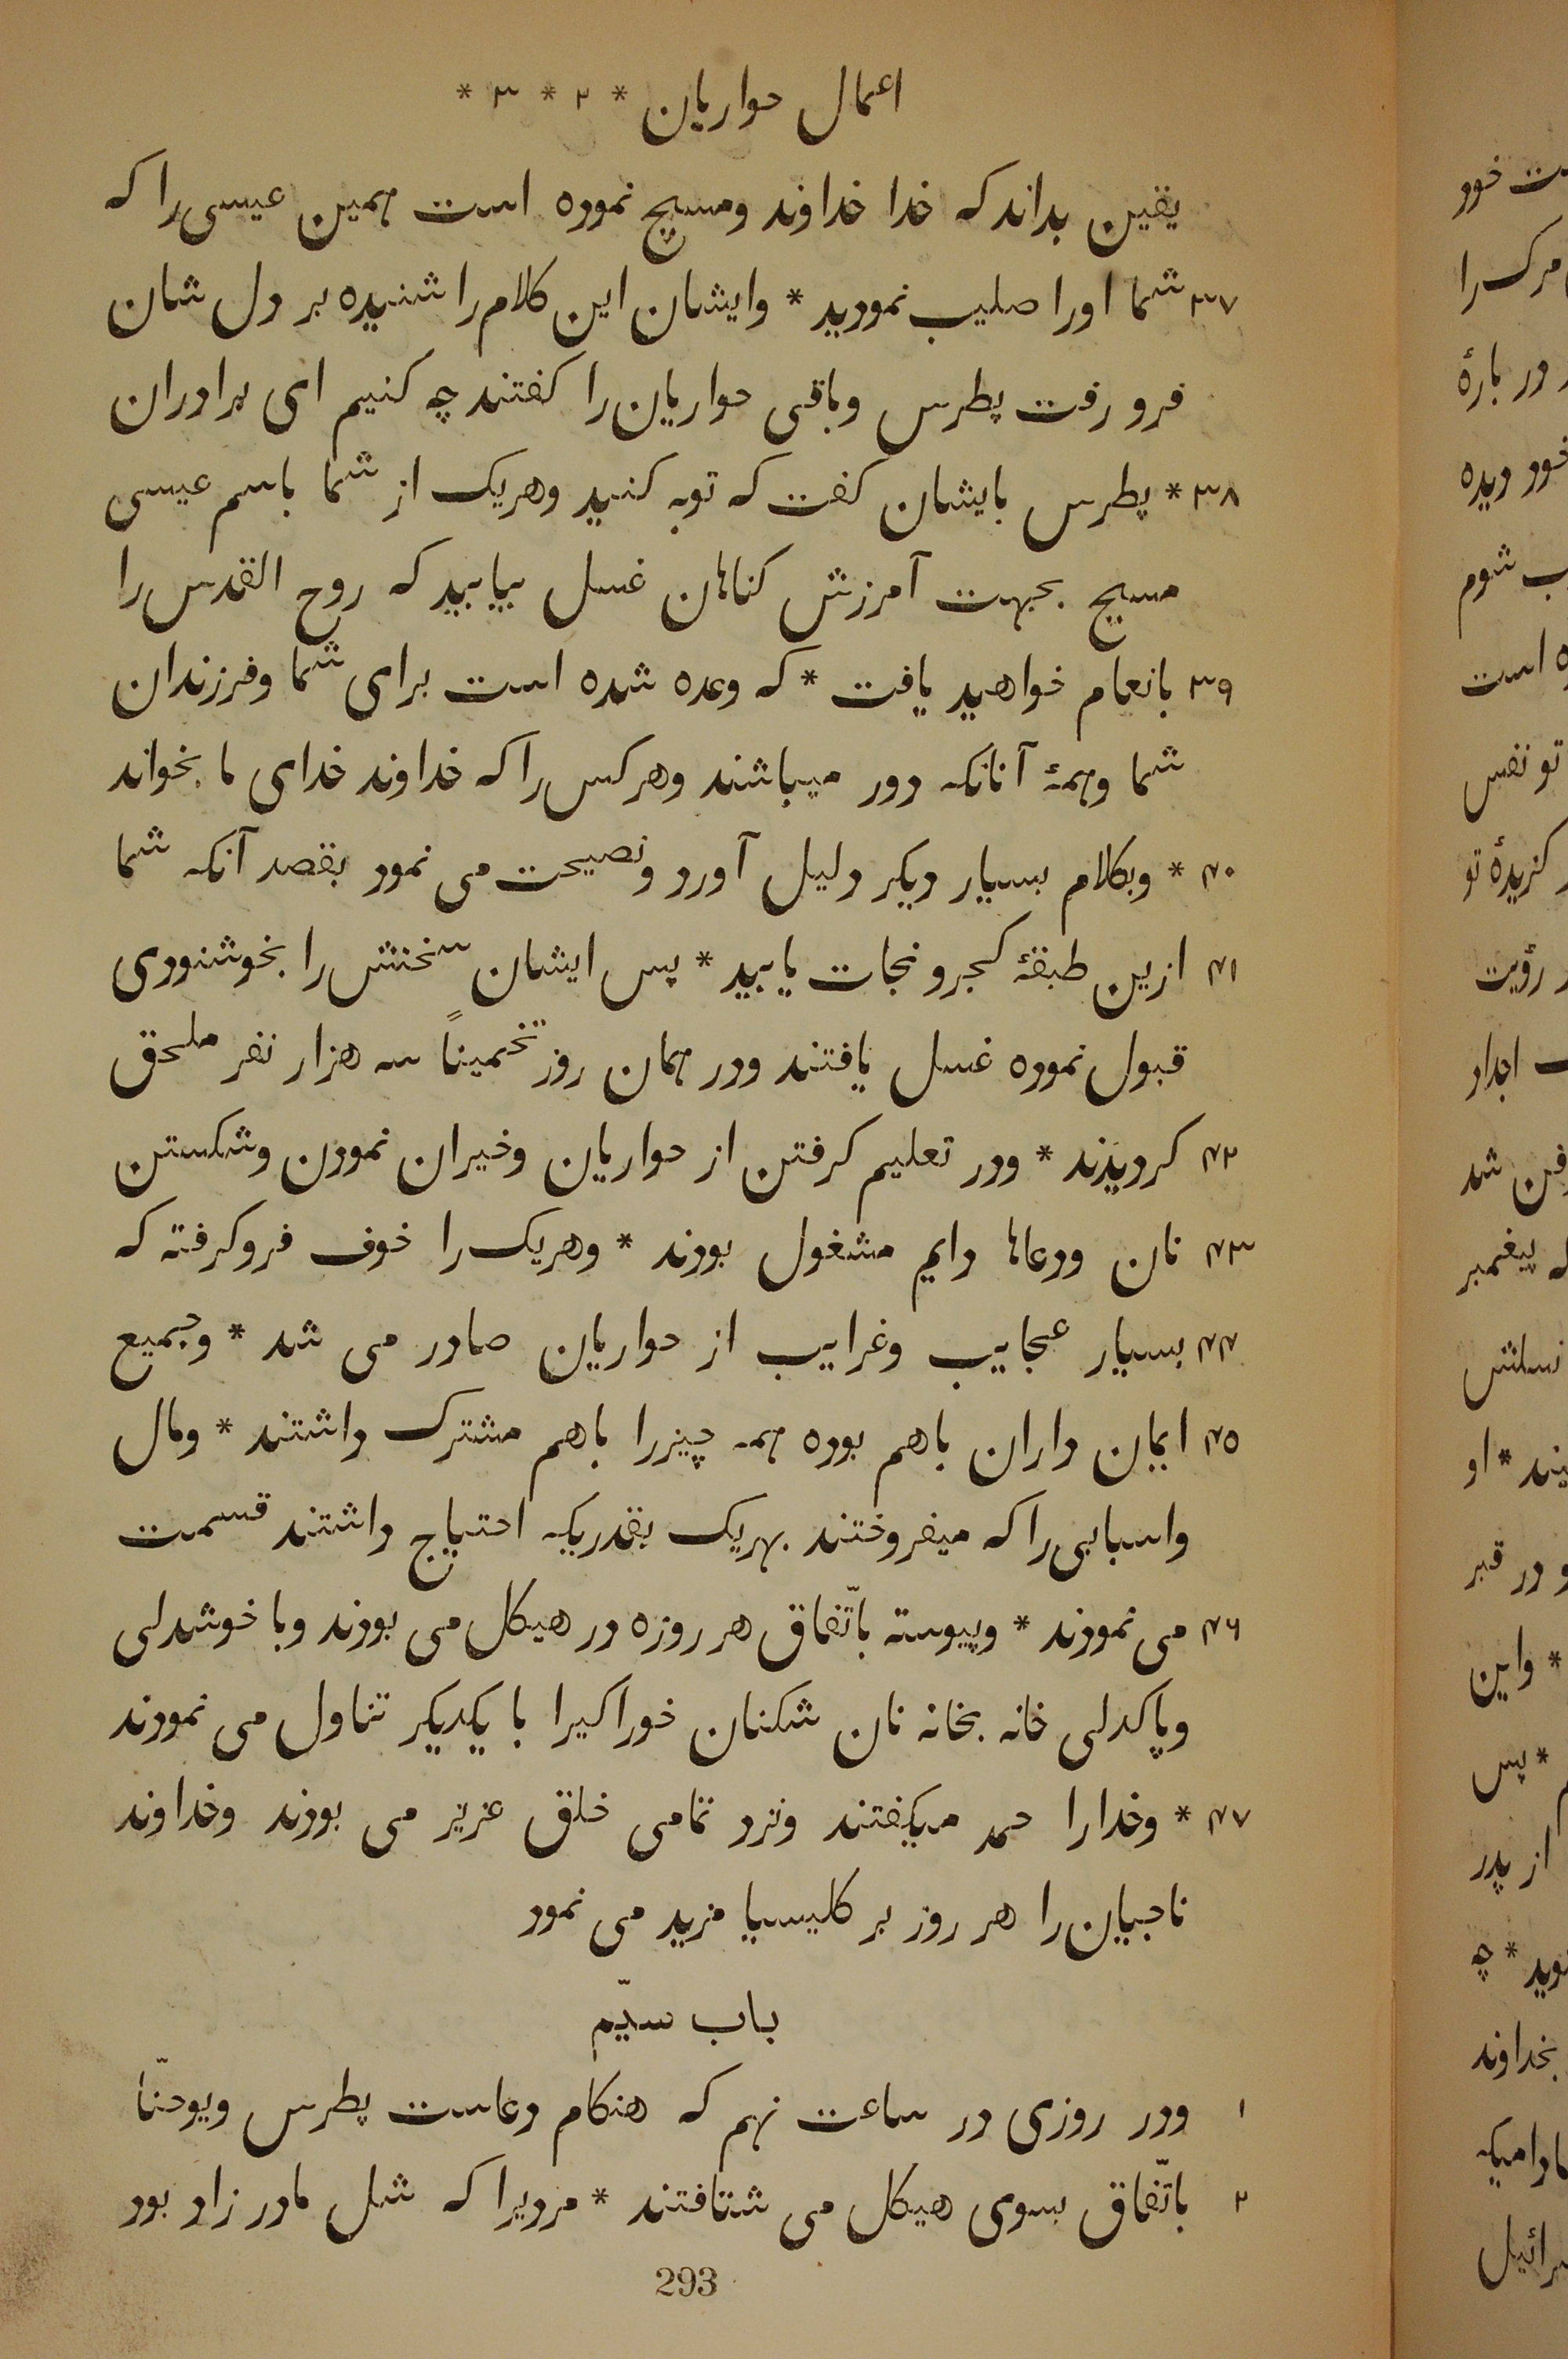 اعمال حواریان * ۲ * ۳ *
یقین بداند که خدا خداوند ومسیح نموده است همین عیسی را که
۳۷ شما اورا صلیب نمودید * وایشان این کلام را شنیده بر دل شان
فرو رفت پطرس وباقی حواریان را کفتند چه کنیم ای برادران
۳۸ * پطرس بایشان کفت که توبه کنید وهریک از شما باسم عیسی
مسیح بجهت آمرزش کناهان غسل بیابید که روح القدس را
۳۹ بانعام خواهید یافت * که وعده شده است برای شما وفرزندان
شما وهمهٔ آنانکه دور میباشند وهرکس را که خداوند خدای ما بخواند
۴۰ * وبکلام بسیار دیکر دلیل آورد ونصیحت می نمود بقصد آنکه شما
۴۱ ازین طبقهٔ کجرو نجات یابید * پس ایشان سخنش را بخوشنودی
قبول نموده غسل یافتند ودر همان روز تخمیناً سه هزار نفر ملحق
۴۲ کردیدند * ودر تعلیم کرفتن از حواریان وخیران نمودن وشکستن
۴۳ نان ودعاها دایم مشغول بودند * وهریک را خوف فروکرفته که
۴۴ بسیار عجایب وغرایب از حواریان صادر می شد * وجمیع
۴۵ ایمان داران باهم بوده همه چیزرا باهم مشترک داشتند * ومال
واسبابی را که میفروختند بهریک بقدریکه احتیاج داشتند قسمت
۴۶ می نمودند * وپیوسته باتّفاق هر روزه در هیکل می بودند وبا خوشدلی
وپاکدلی خانه بخانه نان شکنان خوراکیرا با یکدیکر تناول می نمودند
۴۷ * وخدارا حمد میکفتند ونزد تمامی خلق عزیز می بودند وخداوند
ناجیان را هر روز بر کلیسیا مزید می نمود
باب سیّم
۱ ودر روزی در ساعت نهم که هنکام دعاست پطرس ویوحنّا
۲ باتّفاق بسوی هیکل می شتافتند * مردیرا که شل مادر زاد بود
293
ت خود
مرک را
در بارهٔ
خود دیده
شوم
است
تو نفس
کزیدهٔ تو
رؤیت
اجداد
شد
پیغمبر
نسلش
* او
در قبر
* واین
* پس
از پدر
* چه
بخداوند